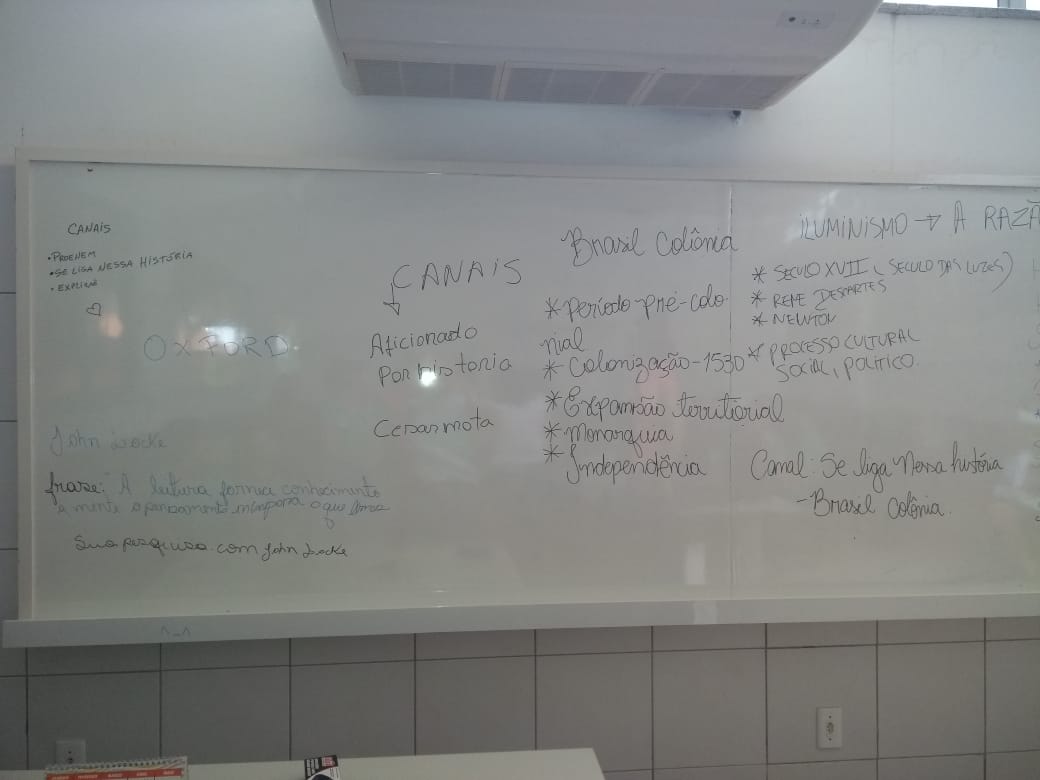 CANAIS
• PROENEM
• SE LIGA NESSA HISTÓRIA
OXFORD
John Locke
frase: "A leitura fornece conhecimento
a mente o pensamento incorpora o que lemos
Sua pesquisa com John Locke
CANAIS
Aficionado
Por historia
Cesar mota
Brasil Colônia
* Período Pré-colo-
nial
* Colonização - 1530
* Expansão territorial
* Monarquia
* Independência
ILUMINISMO → A RAZÃ
* SECULO XVII (SECULO DAS LUZES)
* RENE DESCARTES
* NEWTON
* PROCESSO CULTURAL
SOCIAL, POLITICO.
Canal: Se liga Nessa história
- Brasil Colônia.
^_^